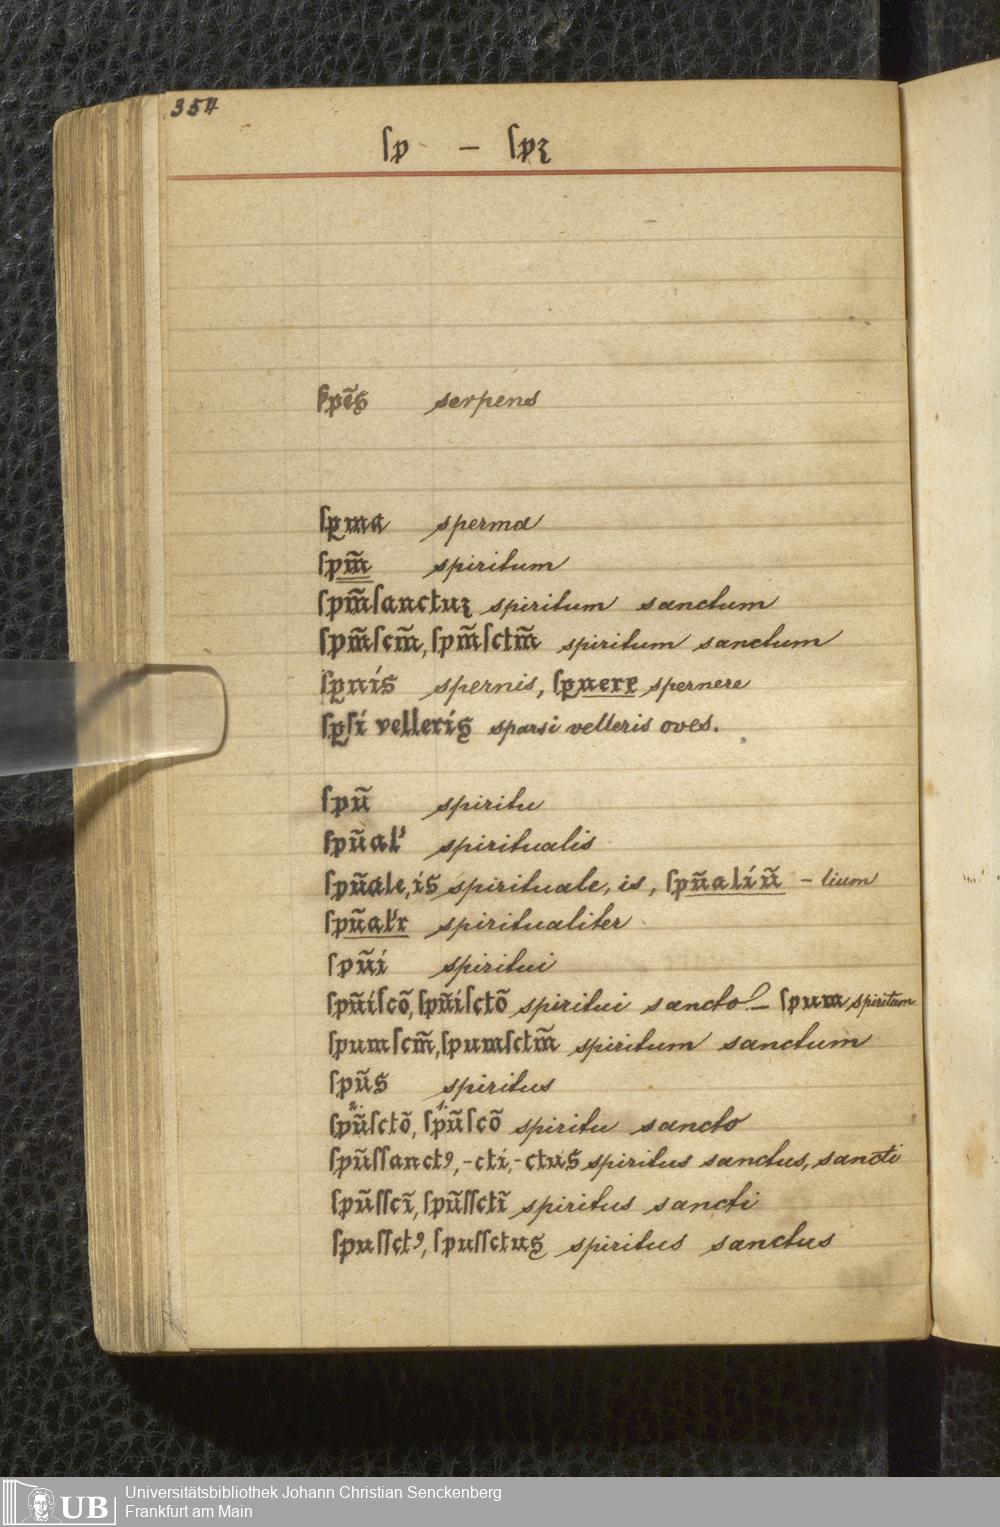 354
ſp – ſpꝫ
ẜpẽs serpens
ſꝑma sperma
ſpm̃ spiritum
ſpm̃ſanctuꝫ spiritum sanctum
ſpm̃ſcm̃, ſpm̃ſctm̃ spiritum sanctum
ſꝑnis spernis, ſꝑnere spernere
ſꝑſi velleris sparsi velleris oves.
ſpũ spiritu
ſpũal' spiritualis
ſpũale, is spirituale, is, ſpũaliũ – lium
ſpũal'r spiritualiter
ſpũi spiritui
ſpũiſcõ, ſpũiſctõ spiritui sancto! – ſpum spiritum
ſpumſcm̃, ſpumſctm̃ spiritum sanctum
ſpũs spiritus
2. 1.
ſpũſctõ, ſpũſcõ spiritu sancto
ſpũſſanctꝰ, -cti, -ctus spiritus sanctus, sancti
ſpũſſcĩ, ſpũſſctĩ spiritus sancti
ſpuſſctꝰ, ſpuſſctus spiritus sanctus
UB Universitätsbibliothek Johann Christian Senckenberg
Frankfurt am Main